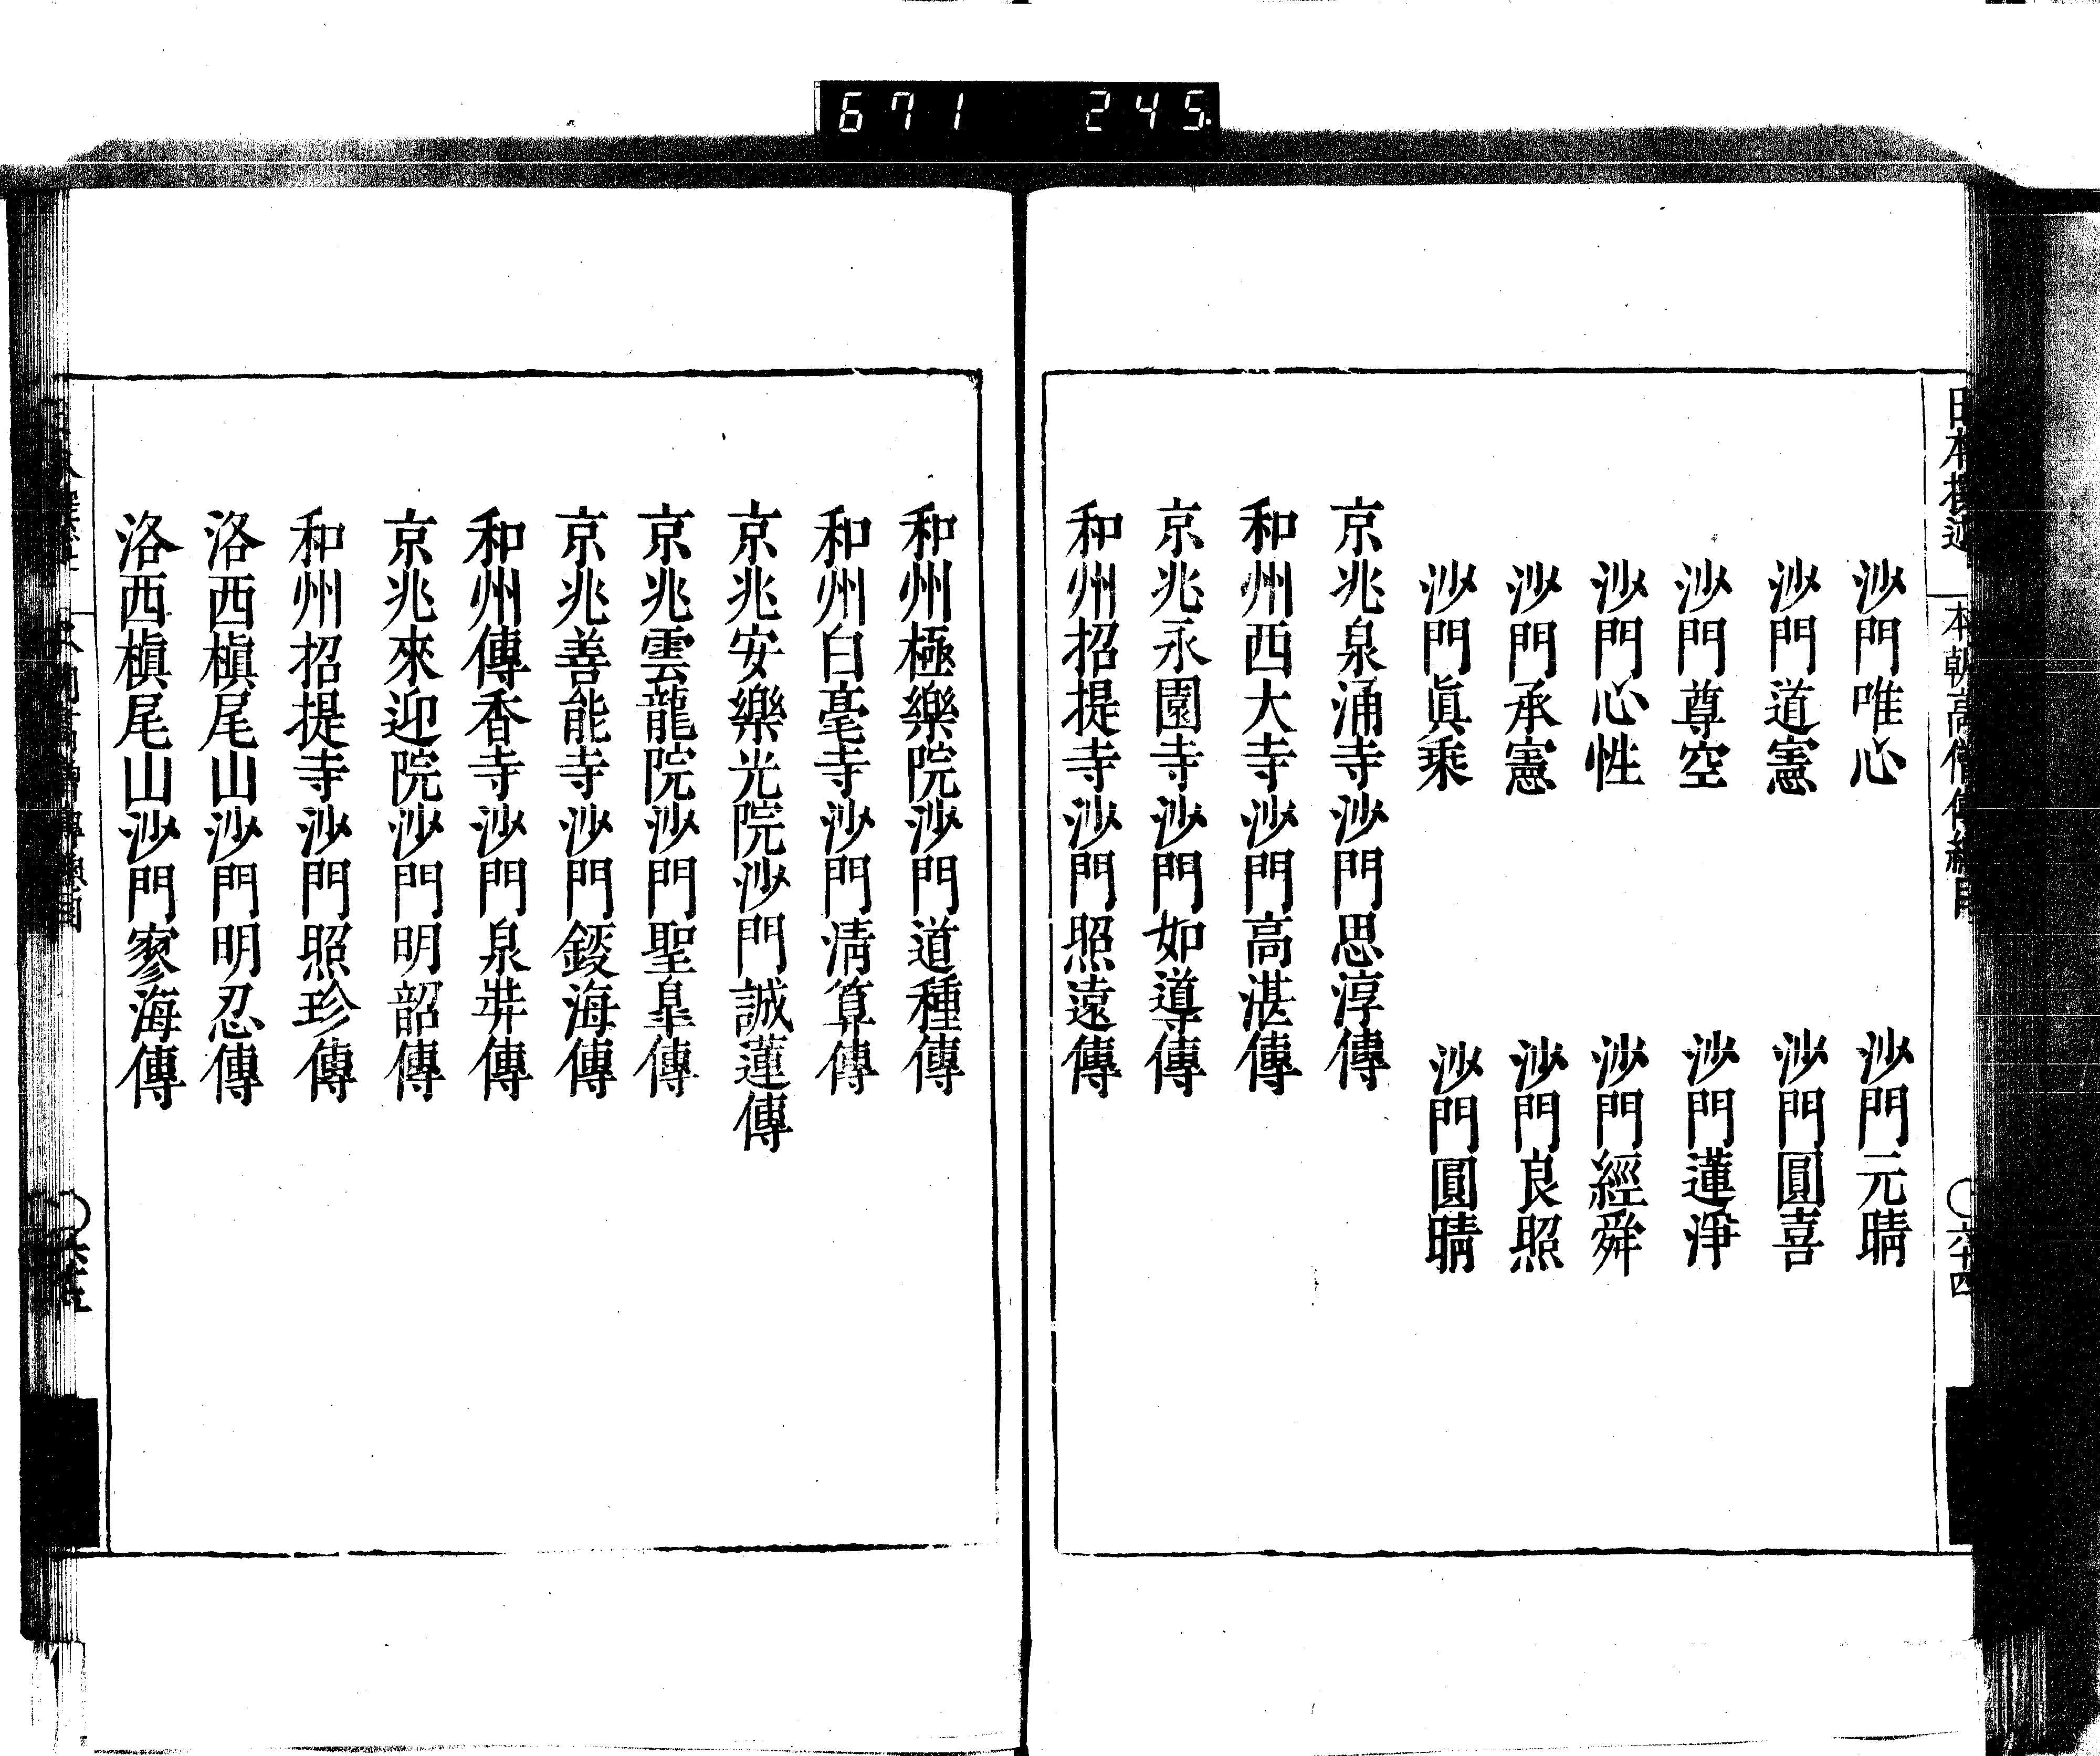 671 245
日本撰述 本朝高僧傳總目 ○六十四
沙門唯心 沙門元晴
沙門道憲 沙門圓喜
沙門尊空 沙門蓮淨
沙門心性 沙門經舜
沙門承憲 沙門良照
沙門眞乘 沙門圓晴
京兆泉涌寺沙門思淳傳
和州西大寺沙門高湛傳
京兆永園寺沙門如導傳
和州招提寺沙門照遠傳
和州極樂院沙門道種傳
和州白毫寺沙門淸算傳
京兆安樂光院沙門誠蓮傳
京兆雲龍院沙門聖皐傳
京兆善能寺沙門鍐海傳
和州傳香寺沙門泉奘傳
京兆來迎院沙門明韶傳
和州招提寺沙門照珍傳
洛西槇尾山沙門明忍傳
洛西槇尾山沙門寥海傳